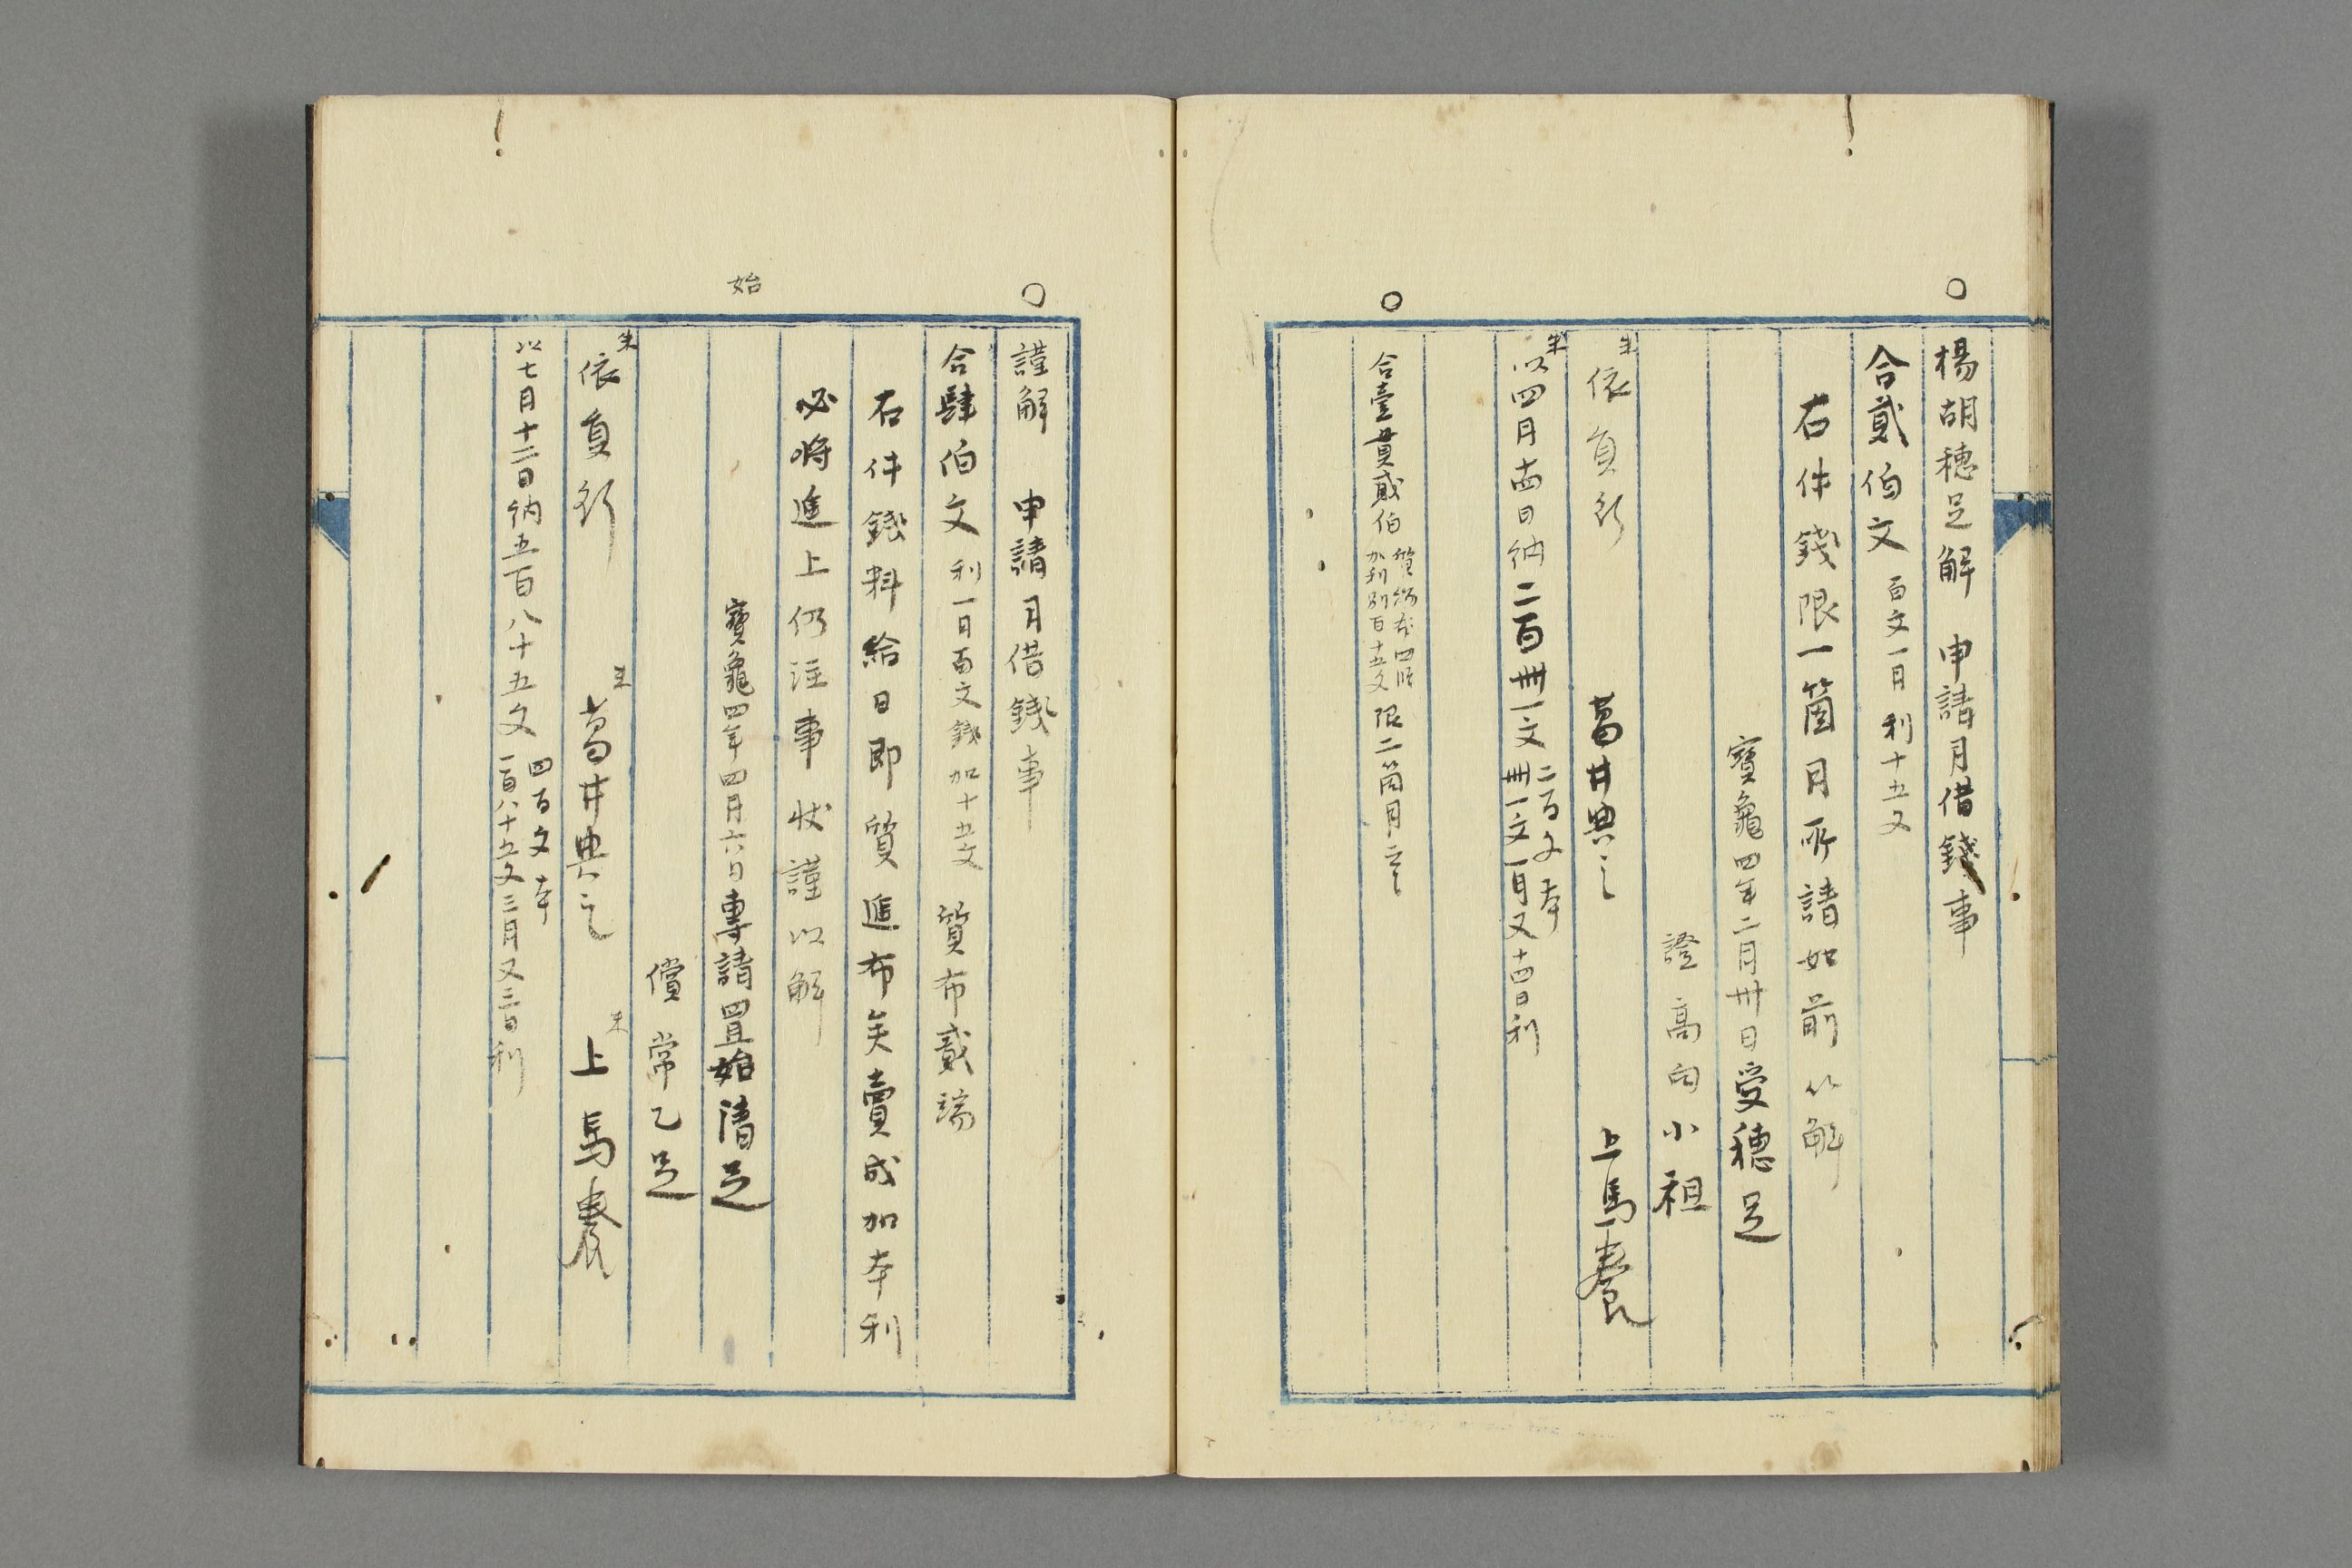 ○
楊胡穂足解 申請月借錢事
合貳伯文 百文一月利十五文
右件錢限一箇月所請如前以解
寶龜四年二月卅日受穂足
證高向小祖
朱
依員行 葛井典之 上馬養
朱
以四月十四日納二百卌一文 二百文本
卌一文一月又十四日利
○
合壹貫貳伯 質 布四
加利別百十五文 限二箇月
○
謹解 申請月借錢事
合肆伯文 利一月百文錢加十五文 質布貳端
右件錢料給日即質進布矣賣成加本利
必将進上仍注事状謹以解
始
寶龜四年四月六日專請置始清足
償常乙足
朱 朱 朱
依員行 葛井典之 上馬養
以七月十二日納五百八十五文 四百文本
一百八十五文三月又三日利